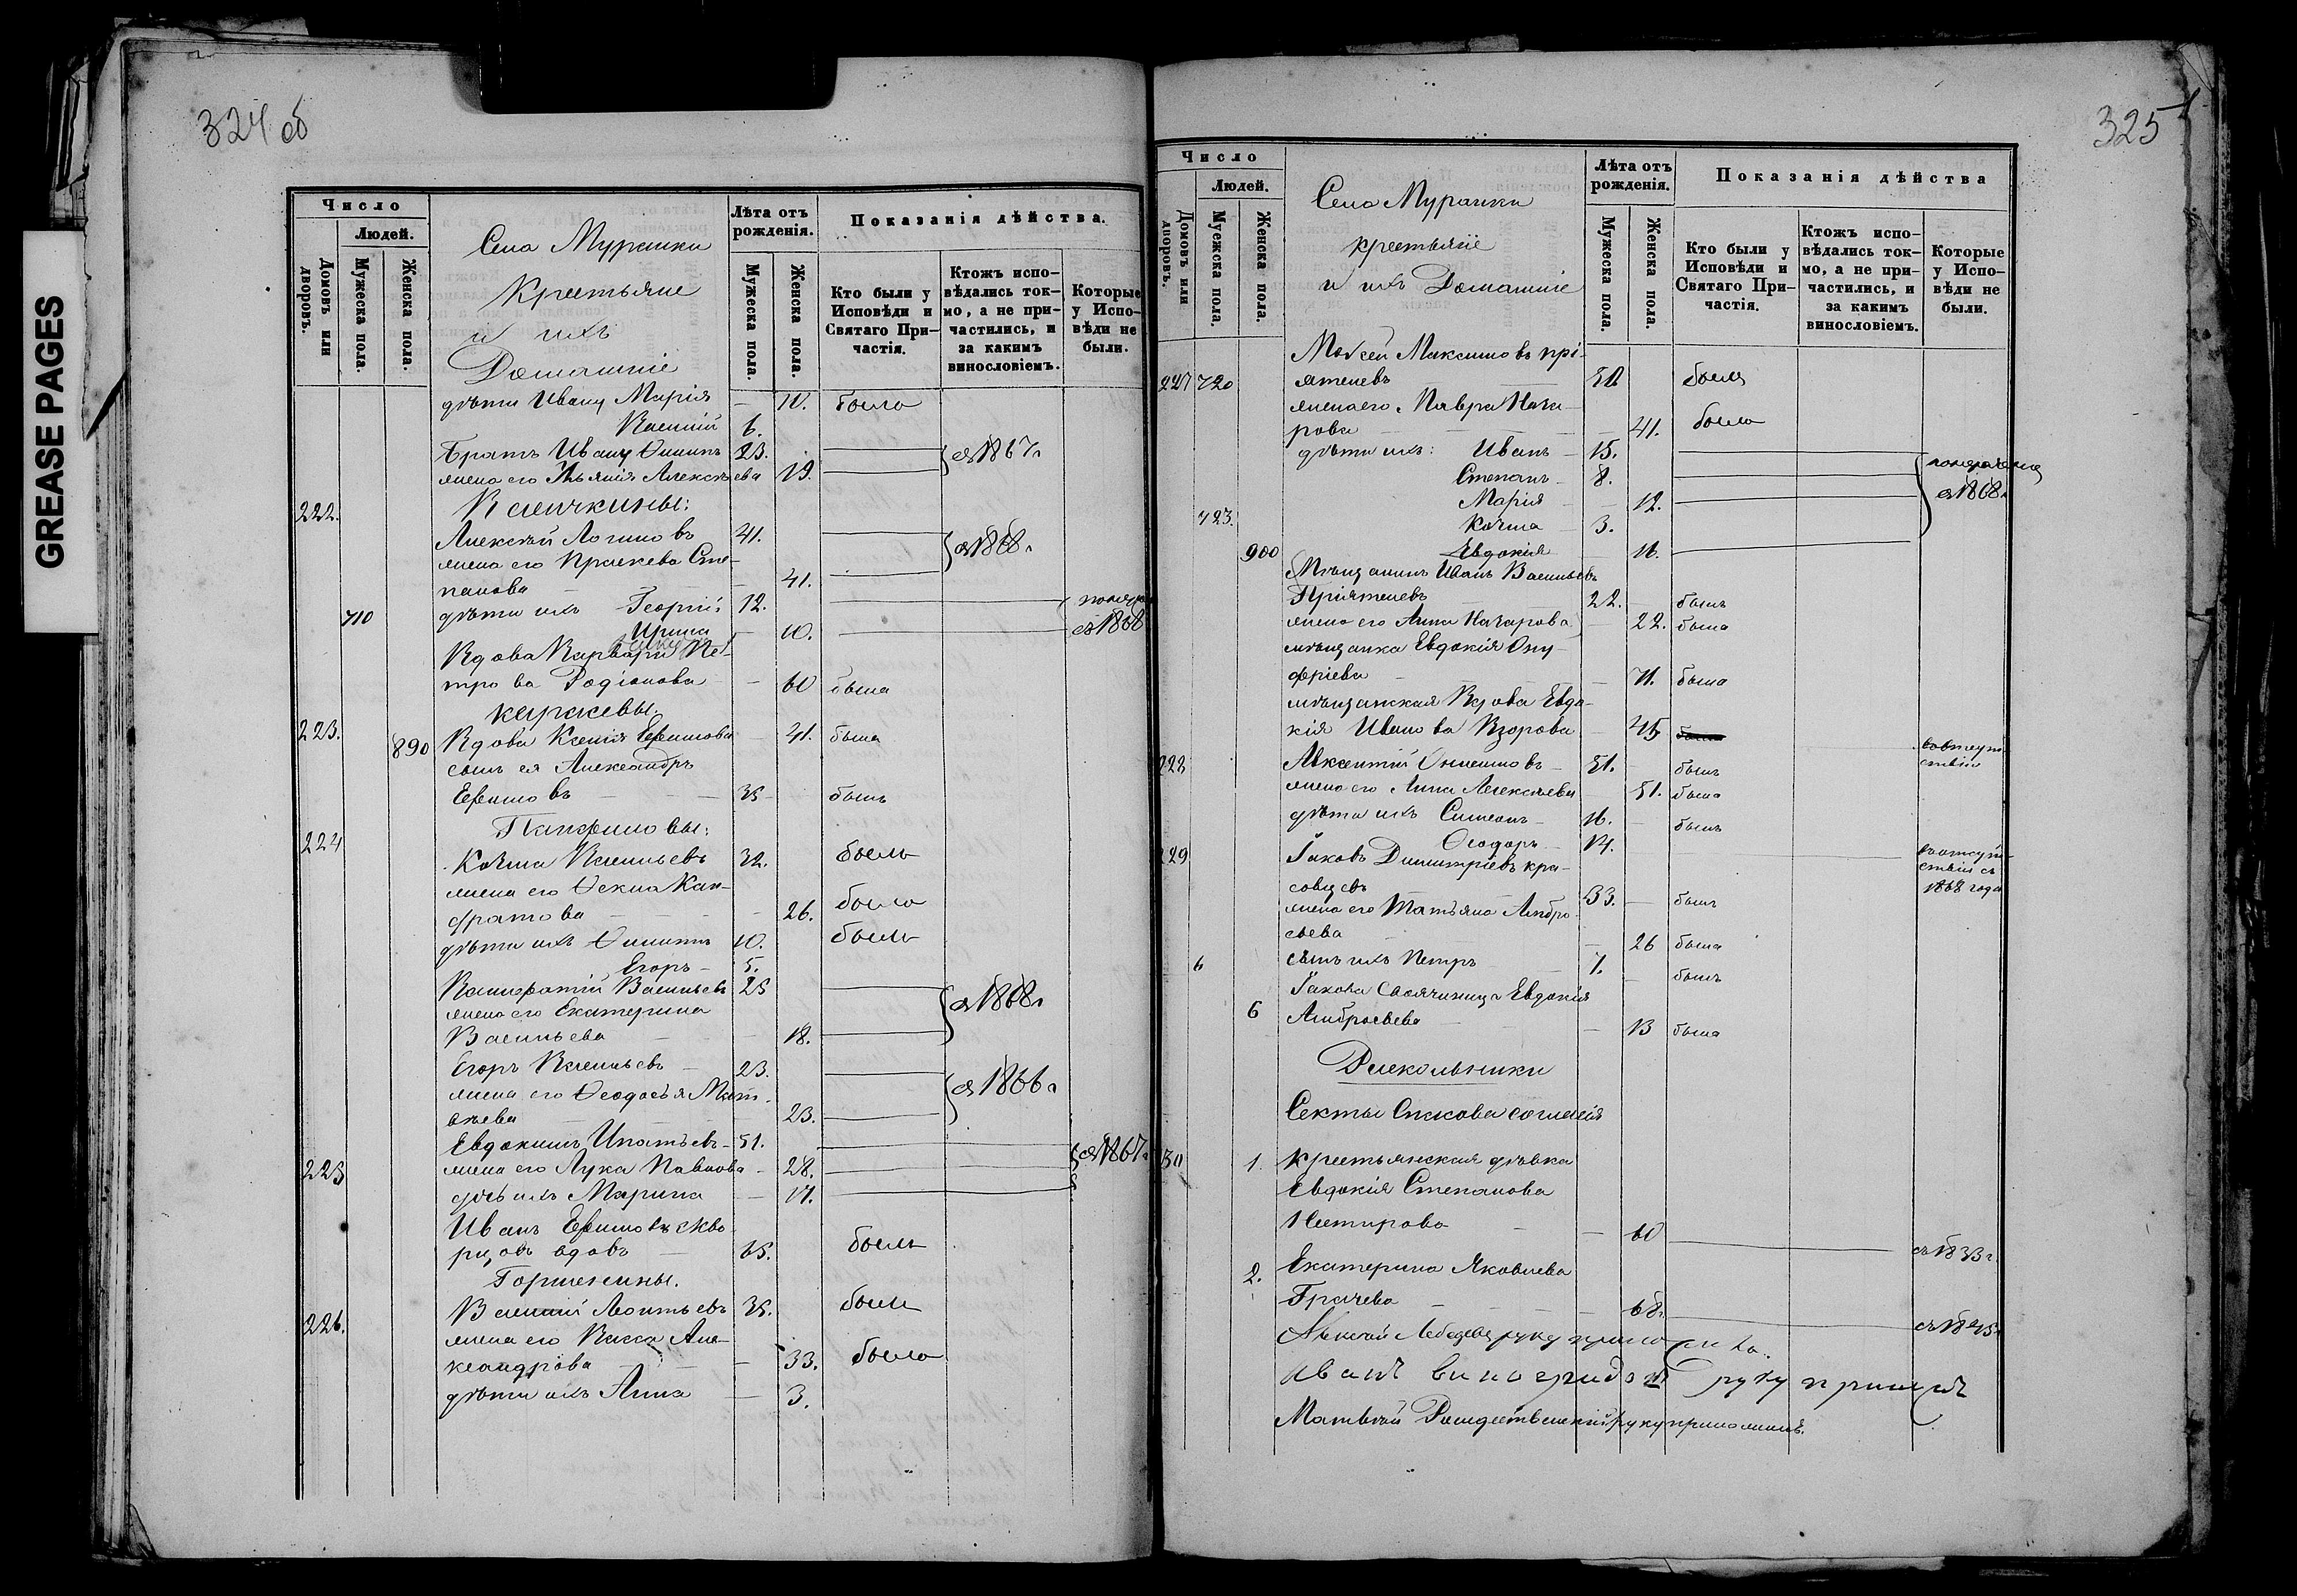 GREASE PAGES
324 об
Число
Людей.
Домовъ или дворовъ.
Мужеска пола.
Женска пола.
Села Мурашки
Крестьяне
и ихъ
Домашніе
Лѣта отъ рожденія.
Мужеска пола.
Женска пола.
Показанія дѣйства.
Кто были у Исповѣди и Святаго Причастія.
Ктожъ исповѣдались токмо, а не причастились, и за какимъ винословіемъ.
Которые у Исповѣди не были.
дѣти Ивану Марія — 10. была
Василій 6.
Братъ Ивану Филипъ 23.
жена его Ульянія Алексѣева 19. } съ 1867 г.
222.
Алексѣй Логиновъ 41.
жена его Праскева Сте-
панова — 41. } съ 1868 г.
710 дѣти ихъ Георгій 12.
Ирина — 10. съ 1868
Вдова Варвара Пе-
трова Родіонова — 60 была
223. 890 Вдова Ксенія Ефимова — 41. была
сынъ ея Александръ
Ефимовъ — 35 былъ
224 Панфиловы:
Козма Васильевъ 32. былъ
жена его Фекла Кан-
дратова — 26. была
дѣти ихъ Филипъ 10. былъ
Егоръ 5.
Васильевъ 25
жена его Екатерина
Васильева 18. } съ 1868 г.
Егоръ Васильевъ 23.
жена его Феодосья Мат-
вѣева 23. } съ 1866 г.
Евдокимъ Ипатьевъ 51.
225 жена его Лукія Павлова — 28.
дочь ихъ Марина — 11. } съ 1867 г.
Иванъ Ефимовъ скво-
рцовъ вдовъ — 65. былъ
Горшенины.
226. Василій Леонтьевъ 35. былъ
жена его Васса Але-
ксандрова — 33. была
дѣти ихъ Анна — 3.
325
Число
Людей.
Домовъ или дворовъ.
Мужеска пола.
Женска пола.
Села Мурашки
крестьяне
и ихъ Домашніе
Лѣта отъ рожденія.
Мужеска пола.
Женска пола.
Показанія дѣйства
Кто были у Исповѣди и Святаго Причастія.
Ктожъ исповѣдались токмо, а не причастились, и за какимъ винословіемъ.
Которые у Исповѣди не были.
Моѵсей Максимовъ прі-
227 720 ятелевъ былъ
жена его Мавра Наза-
рова — 41. была
дѣти ихъ: Иванъ — 15.
Степанъ — 8.
Марія — 12. съ 1868 г.
723. Козма — 3.
900 Евдокія — 16.
Мѣщанинъ Иванъ Васильевъ
Пріятелевъ 22. былъ
жена его Анна Назарова — 22. была
мѣщанка Евдокія Ону-
фріева — 71. была
мѣщанская Вдова Евдо-
кія Иванова Взорова — 45
въ отсутствіи
228 Авксентій Онисимовъ — 51. былъ
жена его Анна Алексѣева 51. была
дѣти ихъ Симеонъ — 16. былъ
Феодоръ — 14.
въ отсутствіи съ 1868 года
229 Іаковъ Димитріевъ кра-
совцевъ 33. — былъ
жена его Татьяна Амбро-
сьева — 26 была
6 сынъ ихъ Петръ 7. — былъ
Іакова Своячиница Евдокія
6 Амбросьева — 13 была
Раскольники
Секты Спасова согласія
1. крестьянская дѣвка
Евдокія Степанова
60 съ 1833 г.
2. Екатерина Яковлева
Грачева — 68.
Алексѣй Лебедевъ руку приложилъ.
Иванъ Виноградовъ руку приложилъ
Матвѣй Рождественскій руку приложилъ.